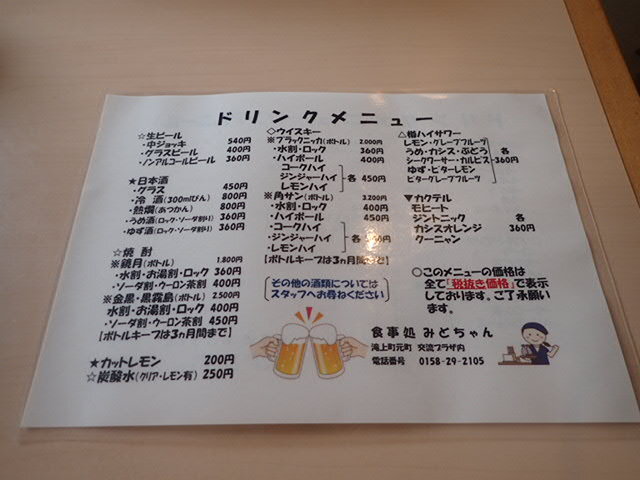 ドリンクメニュー
☆生ビール
・中ジョッキ 540円
・グラスビール 400円
・ノンアルコールビール 360円
★日本酒
・グラス 450円
・冷 酒(300mlびん) 800円
・熱燗(あつかん) 800円
・うめ酒(ロック・ソーダ割り) 360円
・ゆず酒(ロック・ソーダ割り) 360円
☆焼 酎
※鏡月(ボトル) 1.800円
・水割・お湯割・ロック 360円
・ソーダ割・ウーロン茶割 400円
※金黒・黒霧島(ボトル) 2.500円
水割・お湯割・ロック 400円
・ソーダ割・ウーロン茶割 450円
【ボトルキープは3ヵ月間まで】
★カットレモン 200円
☆炭酸水(クリア・レモン有) 250円
◇ウイスキー
※ブラックニッカ(ボトル) 2.000円
・水割・ロック 360円
・ハイボール 400円
コークハイ
ジンジャーハイ 各 450円
レモンハイ
※角サン(ボトル) 3.200円
・水割・ロック 400円
・ハイボール 450円
・コークハイ
・ジンジャーハイ 各
・レモンハイ
【ボトルキープは3ヵ月間まで】
その他の酒類については
スタッフへお尋ねください
△樽ハイサワー
レモン・グレープフルーツ
うめ・カシス・ぶどう 各
シークワーサー・カルピス 360円
ゆず・ビターレモン
ビターグレープフルーツ
▼カクテル
モヒート
ジントニック 各
カシスオレンジ 360円
クーニャン
○このメニューの価格は
全て「税抜き価格」で表示
しております。ご了承願い
ます。
食事処 みどちゃん
滝上町元町 交流プラザ内
電話番号 0158-29-2105